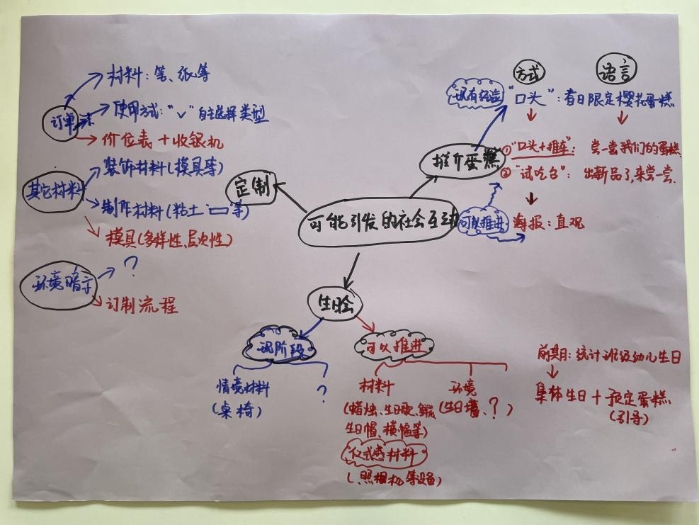 可能引发的社会互动
定制
订单
材料：笔、纸等
使用方式："√"自主选择类型
价位表+收银机
其它材料
装饰材料(模具等)
制作材料(粘土、 等)
模具(多样性、层次性)
环境暗示
?
订制流程
推介蛋糕
方式
语言
现有经验
"口头"：春日限定樱花蛋糕
①"口头+推车"：尝一尝我们的蛋糕
②"试吃台"：出新品了，来尝一尝.
可以推进
海报：直观
生日会
现阶段
情境材料
(桌椅)
?
可以推进
材料
(蜡烛、生日歌、
生日帽、横幅等)
仪式感材料
(照相机等设备)
环境
(生日墙、?)
前期：统计班级幼儿生日
集体生日+预定蛋糕
(引导)